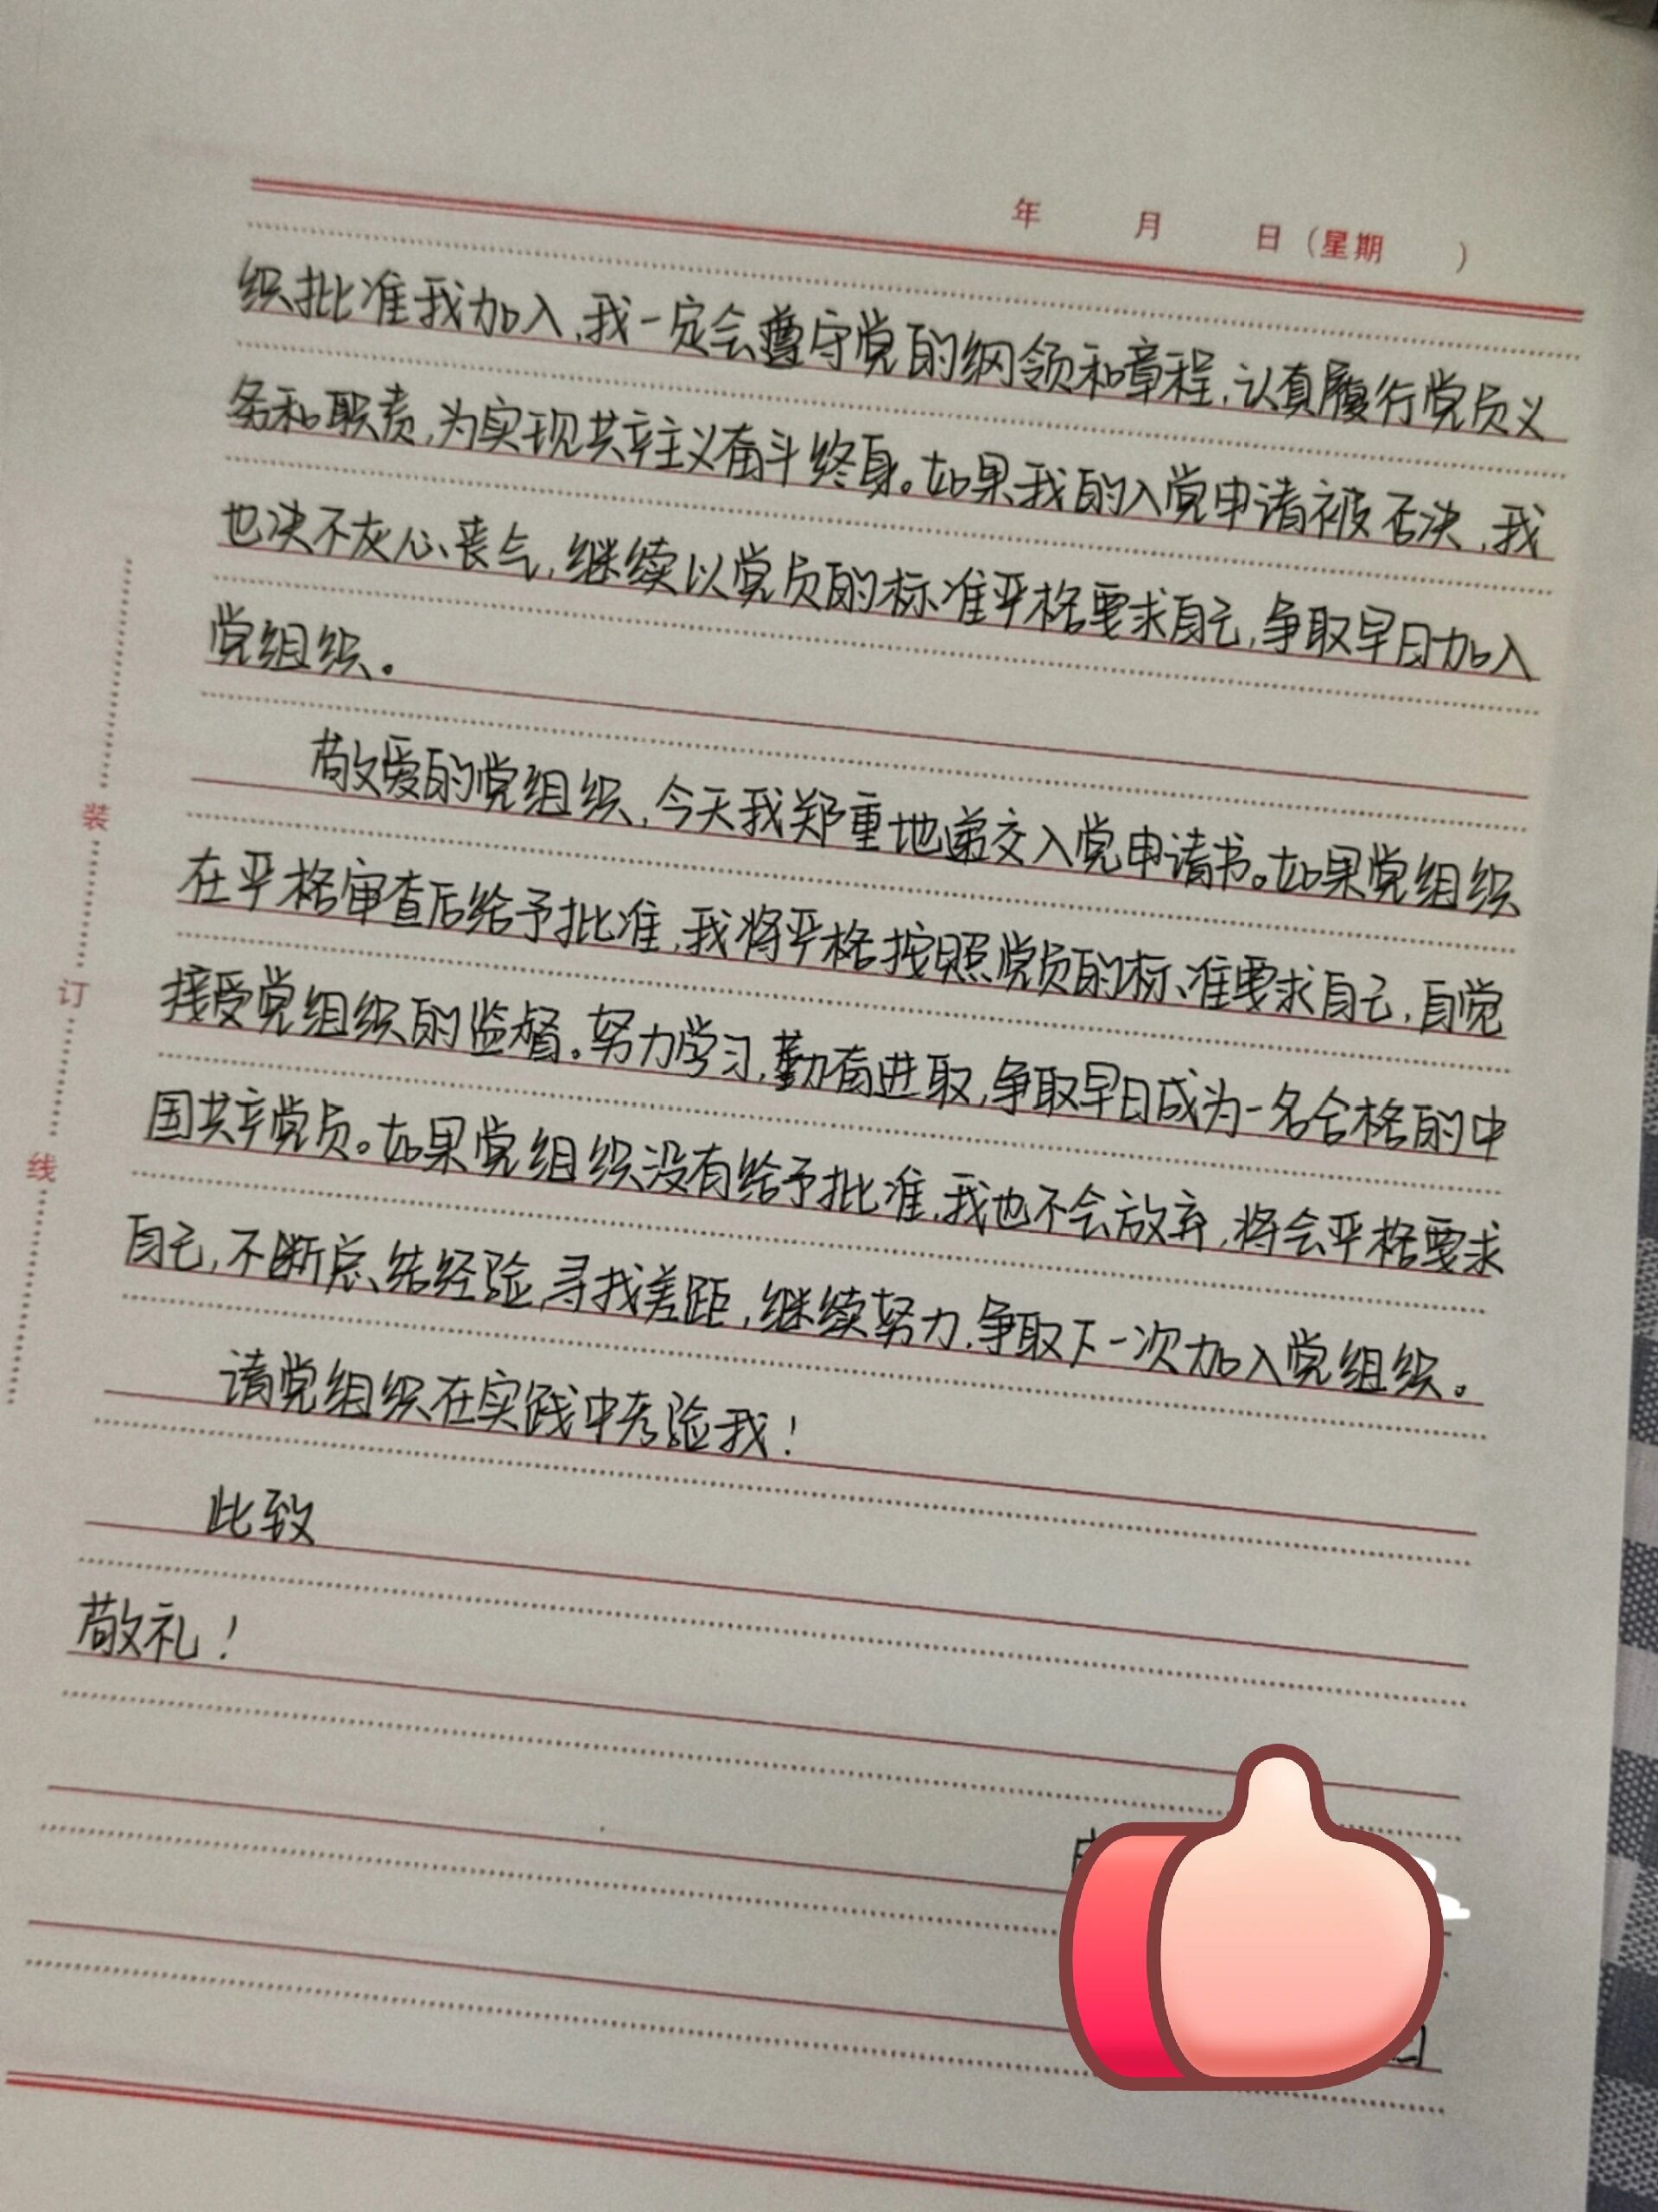 年 月 日(星期 )
织批准我加入,我一定会遵守党的纲领和章程,认真履行党员义
务和职责,为实现共产主义奋斗终身。如果我的入党申请被否决,我
也决不灰心丧气,继续以党员的标准严格要求自己,争取早日加入
党组织。
敬爱的党组织,今天我郑重地递交入党申请书。如果党组织
在严格审查后给予批准,我将严格按照党员的标准要求自己,自觉
接受党组织的监督。努力学习,勤奋进取,争取早日成为一名合格的中
国共产党员。如果党组织没有给予批准,我也不会放弃,将会严格要求
自己,不断总结经验,寻找差距,继续努力,争取下一次加入党组织。
请党组织在实践中考验我!
此致
敬礼!
装
订
线